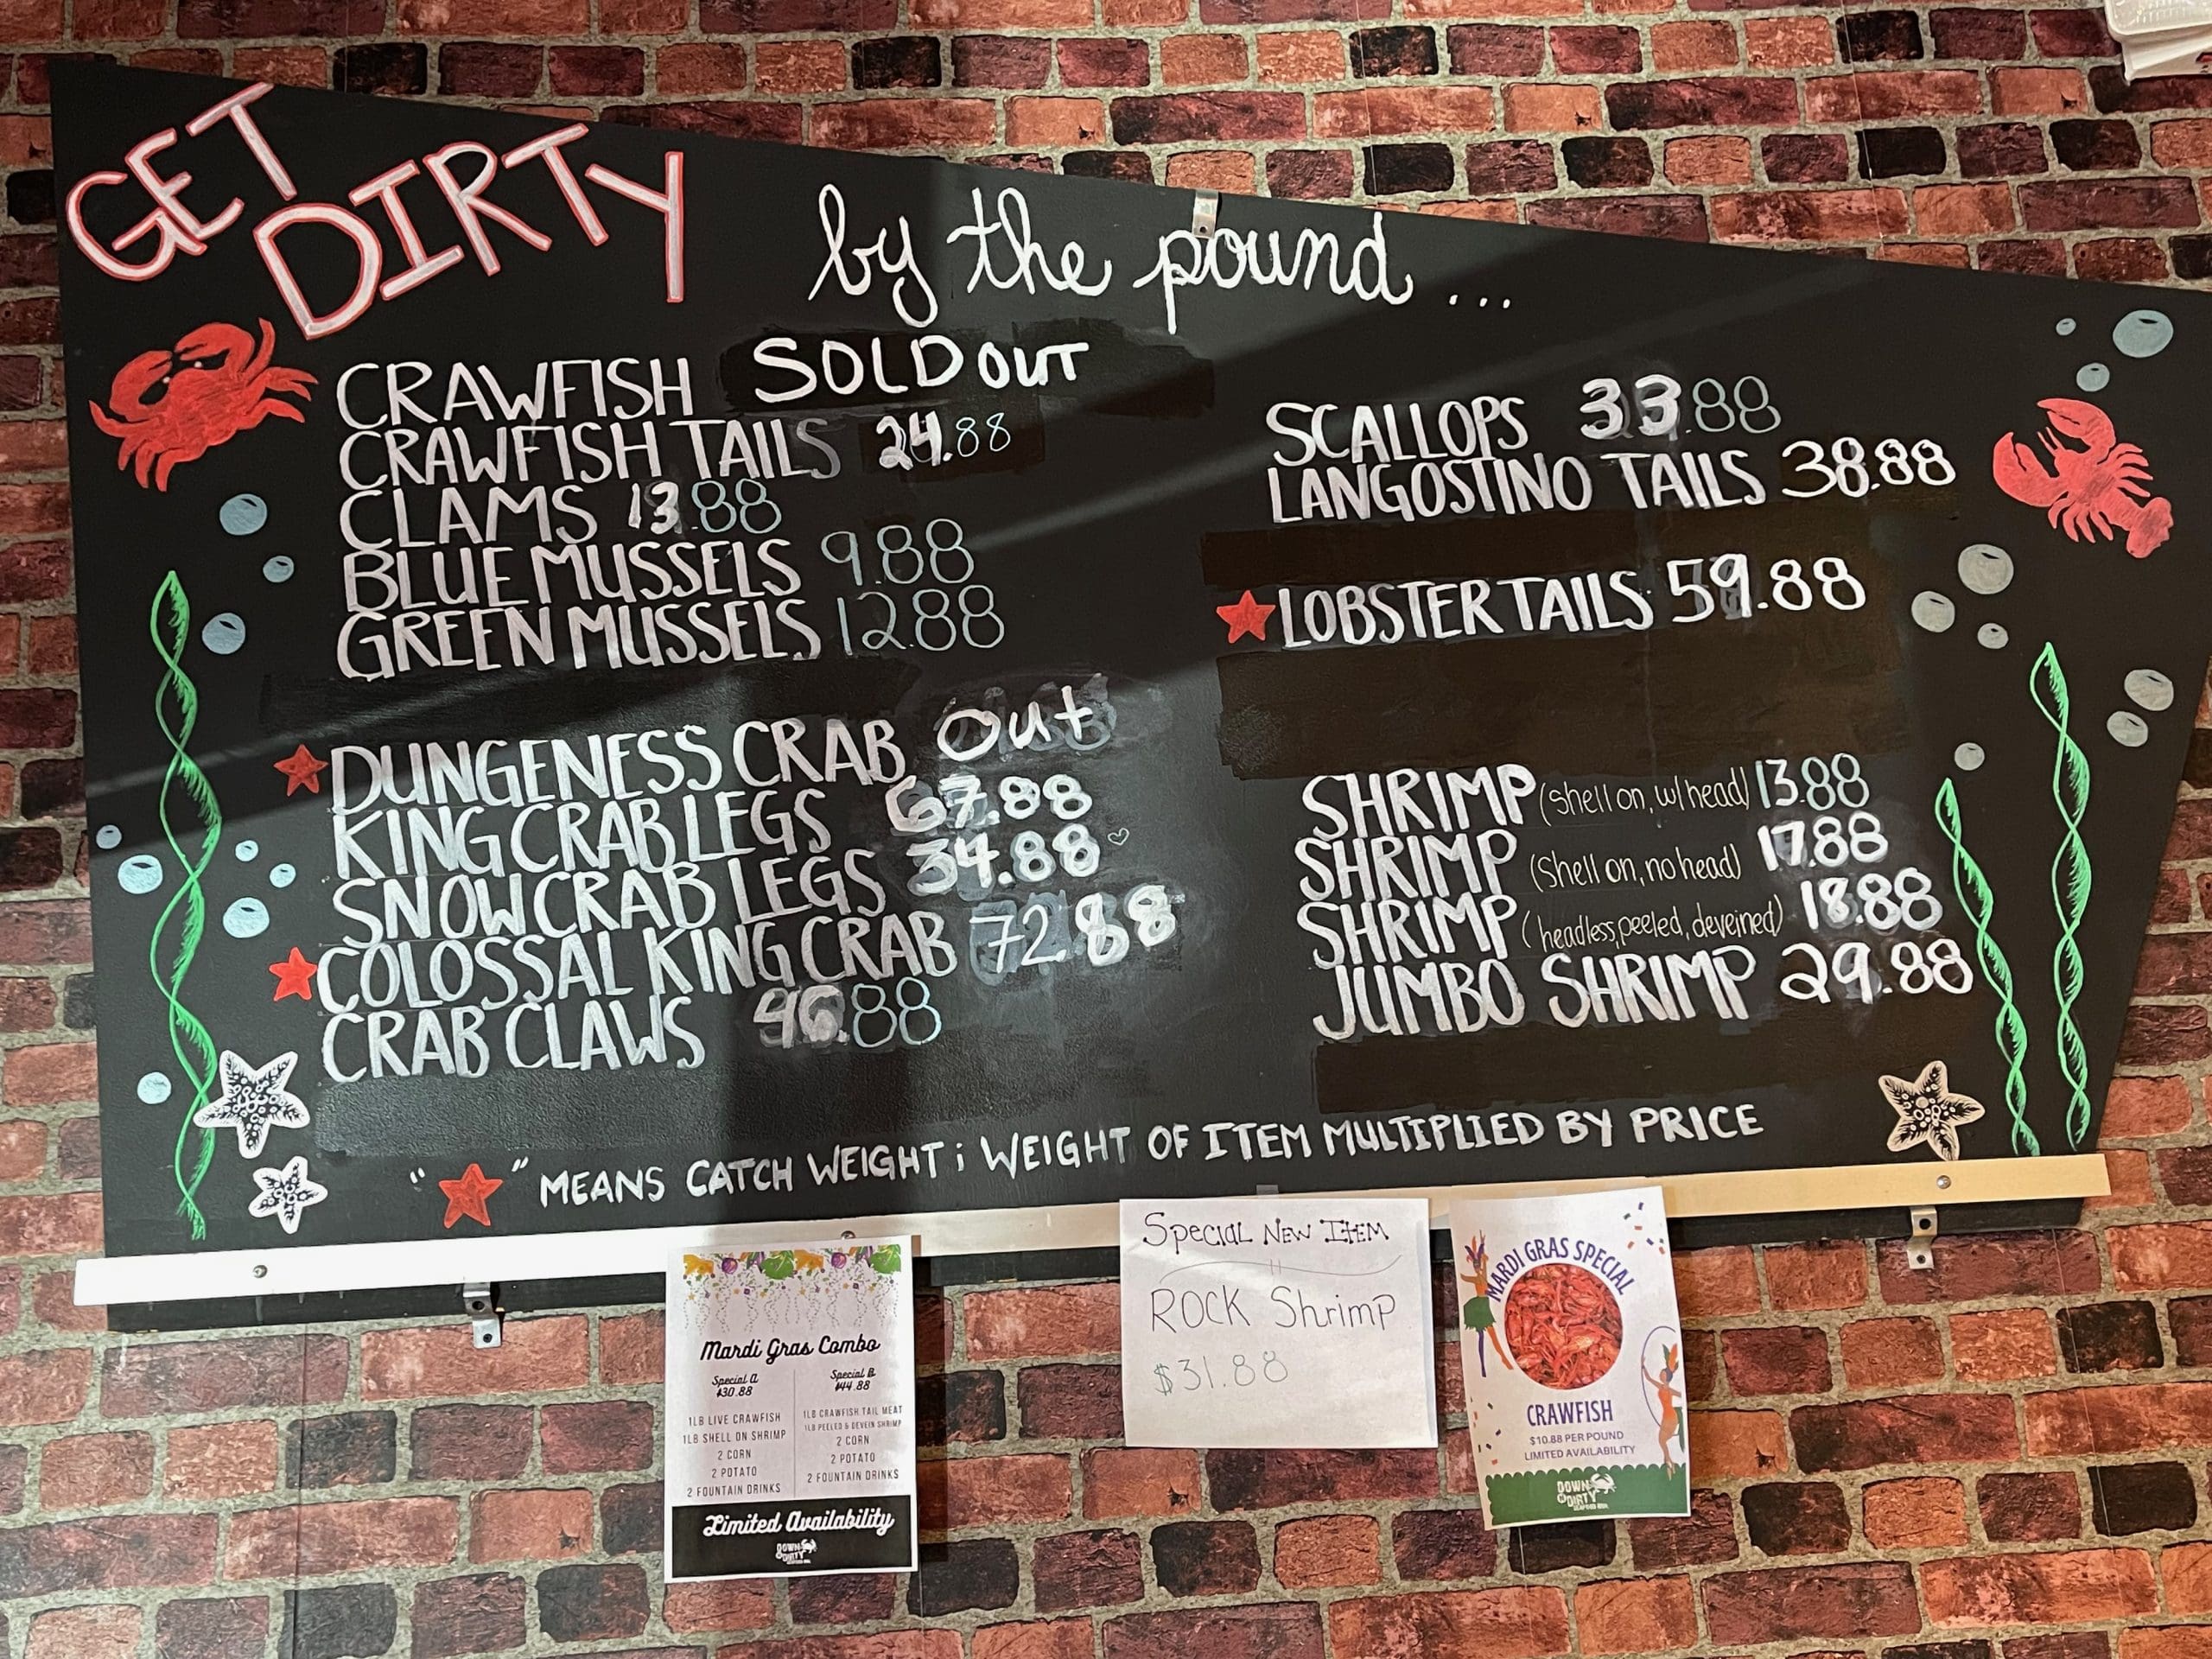 GET
DIRTY
by the pound...
CRAWFISH SOLD OUT
CRAWFISH TAILS 24.88
CLAMS 13.88
BLUE MUSSELS 9.88
GREEN MUSSELS 12.88
DUNGENESS CRAB Out
KING CRAB LEGS 67.88
SNOW CRAB LEGS 34.88
COLOSSAL KING CRAB 72.88
CRAB CLAWS 46.88
SCALLOPS 33.88
LANGOSTINO TAILS 38.88
LOBSTER TAILS 59.88
SHRIMP (shell on, w/ head) 13.88
SHRIMP (shell on, no head) 17.88
SHRIMP (headless, peeled, deveined) 18.88
JUMBO SHRIMP 29.88
" " MEANS CATCH WEIGHT; WEIGHT OF ITEM MULTIPLIED BY PRICE
Mardi Gras Combo
Special A
$30.88
1LB LIVE CRAWFISH
1LB SHELL ON SHRIMP
2 CORN
2 POTATO
2 FOUNTAIN DRINKS
Special B
$44.88
1LB CRAWFISH TAIL MEAT
1LB PEELED & DEVEIN SHRIMP
2 CORN
2 POTATO
2 FOUNTAIN DRINKS
Limited Availability
DOWN
DIRTY
SPECIAL NEW ITEM
ROCK Shrimp
$31.88
MARDI GRAS SPECIAL
CRAWFISH
$10.88 PER POUND
LIMITED AVAILABILITY
DOWN
DIRTY